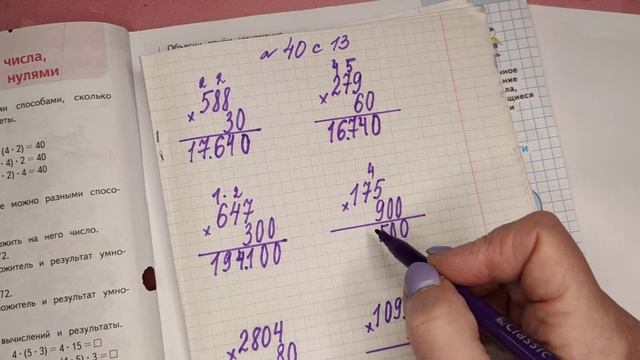 числа,
нулями
ми способами, сколько
еты.
(4 · 2) = 40
· 4) · 2 = 40
· 2) · 4 = 40
е можно разными спосо-
ожить на него число.
72.
ожитель и результат умно-
72.
ножитель и результат умно-
вычислений и результаты.
4 · (5 · 3) = 4 · 15 = □
№ 40 с 13
2 2
588
× 30
17.640
4 5
279
× 60
16.740
1 · 2
647
× 300
194.100
4
175
× 900
500
2804
× 80
× 109
нное
ние
ла,
ющиеся
и
Classic